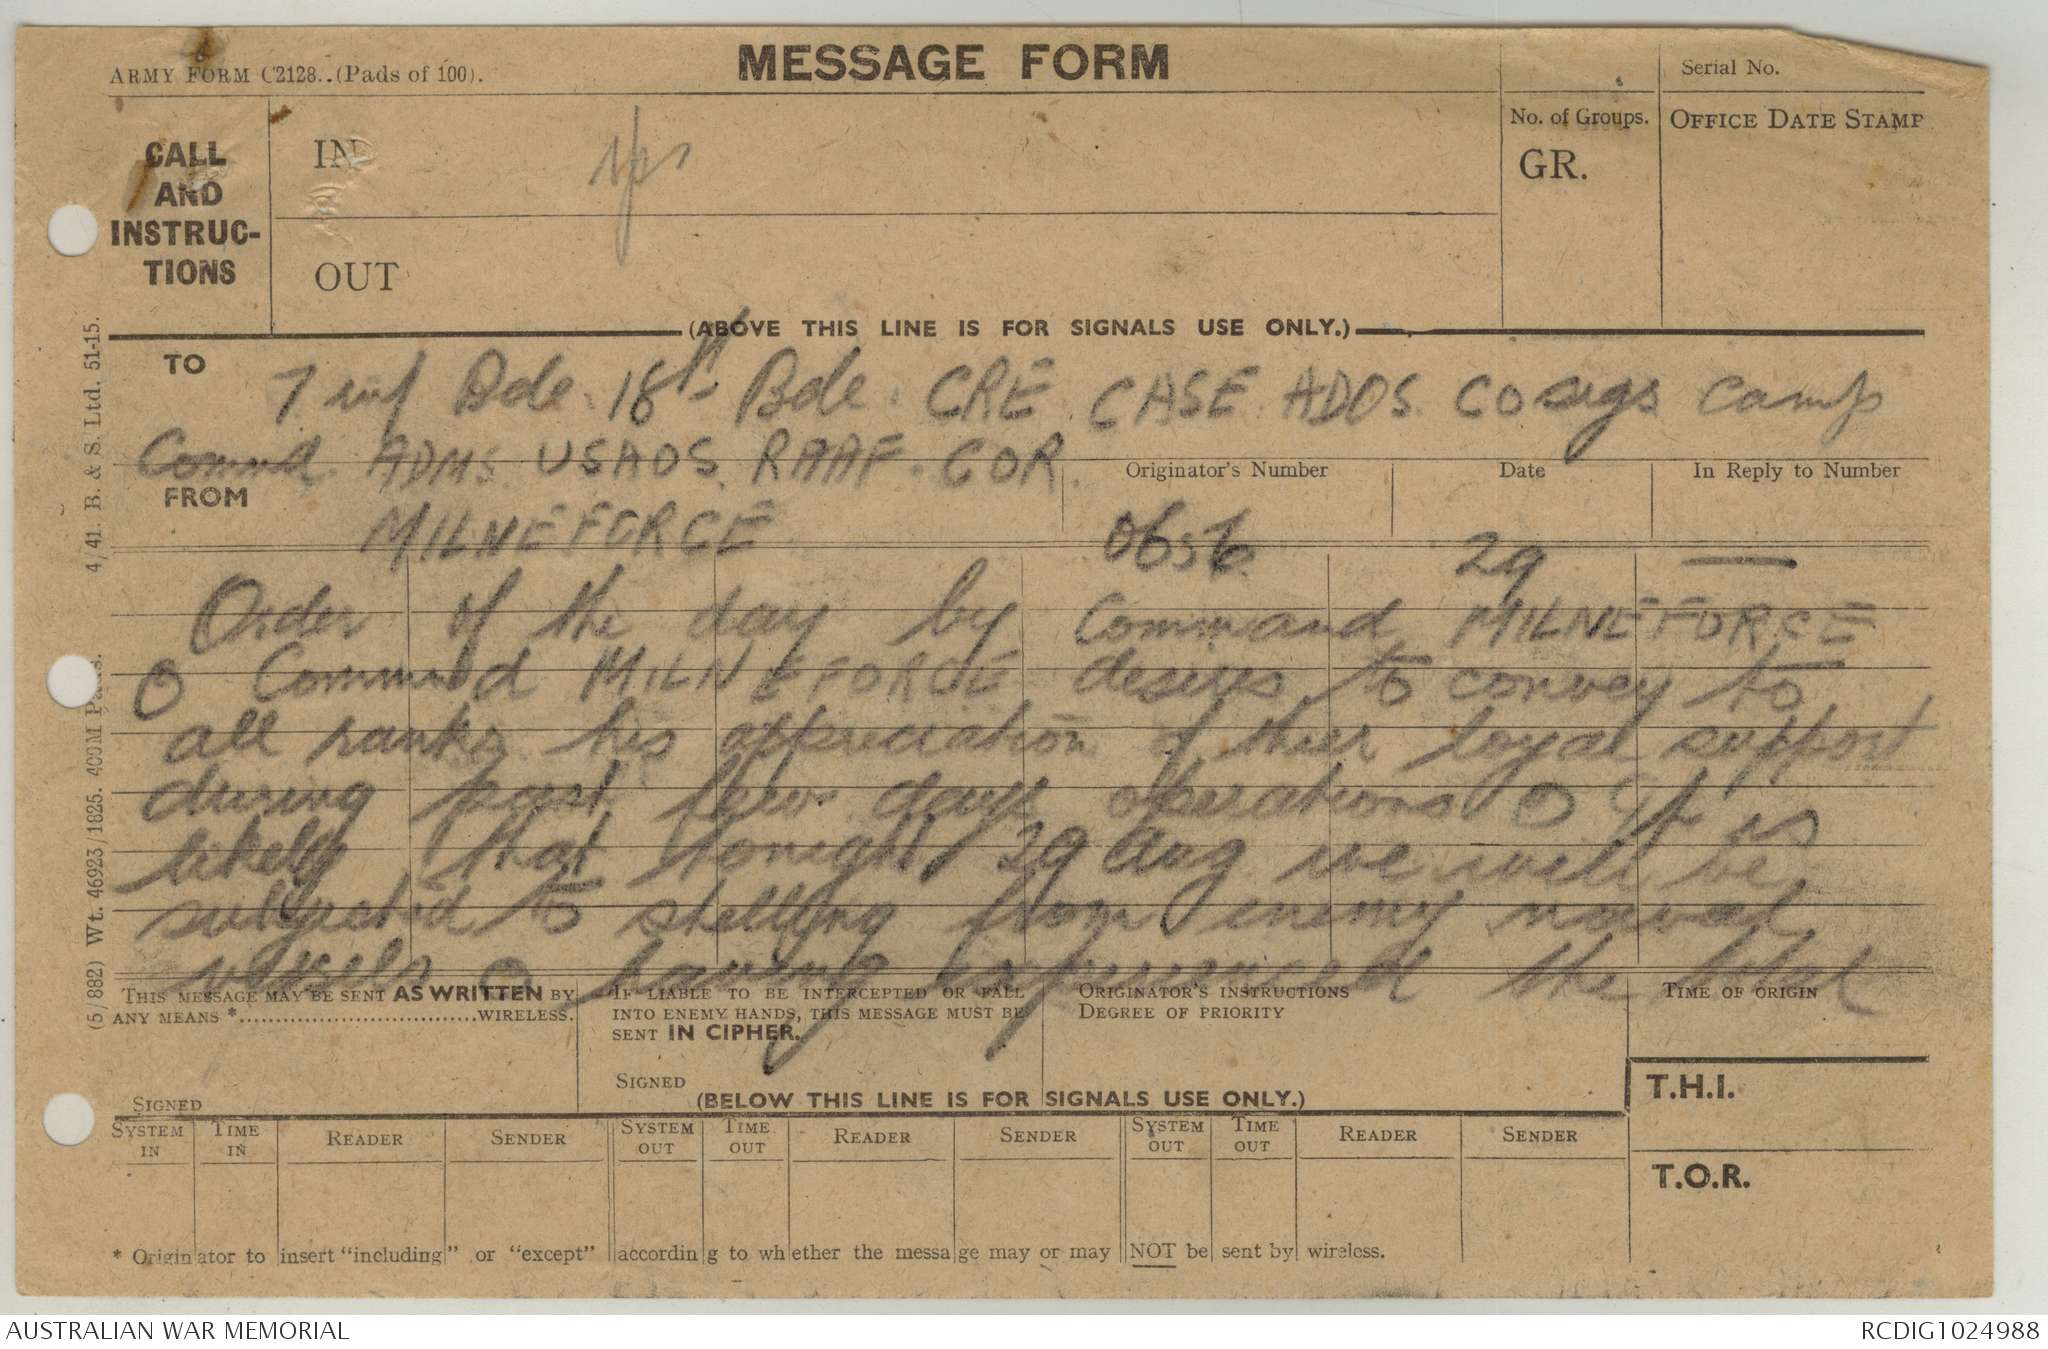 ARMY FORM C2128..(Pads of 100).
MESSAGE FORM
Serial No.
CALL
AND
INSTRUC-
TIONS
IN
OUT
No. of Groups.
GR.
OFFICE DATE STAMP
(ABOVE THIS LINE IS FOR SIGNALS USE ONLY.)
TO
7 inf Bde. 18th Bde. CRE. CASE. ADOS. CO sigs Camp
Commd. ADMS. USAOS. RAAF. COR.
FROM
MILNEFORCE
Originator's Number
Date
In Reply to Number
29
Order of the day by Command MILNEFORCE
O Command MILNEFORCE desires to convey to
all ranks his appreciation of their loyal support
during past few days operations O It is
likely that tonight 29 Aug we will be
subjected to shelling from enemy naval
vessels O having experienced the total
THIS MESSAGE MAY BE SENT AS WRITTEN BY
ANY MEANS *................................WIRELESS.
SIGNED
IF LIABLE TO BE INTERCEPTED OR FALL
INTO ENEMY HANDS, THIS MESSAGE MUST BE
SENT IN CIPHER.
SIGNED
ORIGINATOR'S INSTRUCTIONS
DEGREE OF PRIORITY
TIME OF ORIGIN
(BELOW THIS LINE IS FOR SIGNALS USE ONLY.)
T.H.I.
T.O.R.
SYSTEM IN
TIME IN
READER
SENDER
SYSTEM OUT
TIME OUT
READER
SENDER
SYSTEM OUT
TIME OUT
READER
SENDER
* Originator to insert "including" or "except" according to whether the message may or may NOT be sent by wireless.
(5/882) Wt. 46923/1825. 400M Pads. 4/41. B. & S. Ltd. 51-15.
AUSTRALIAN WAR MEMORIAL
RCDIG1024988